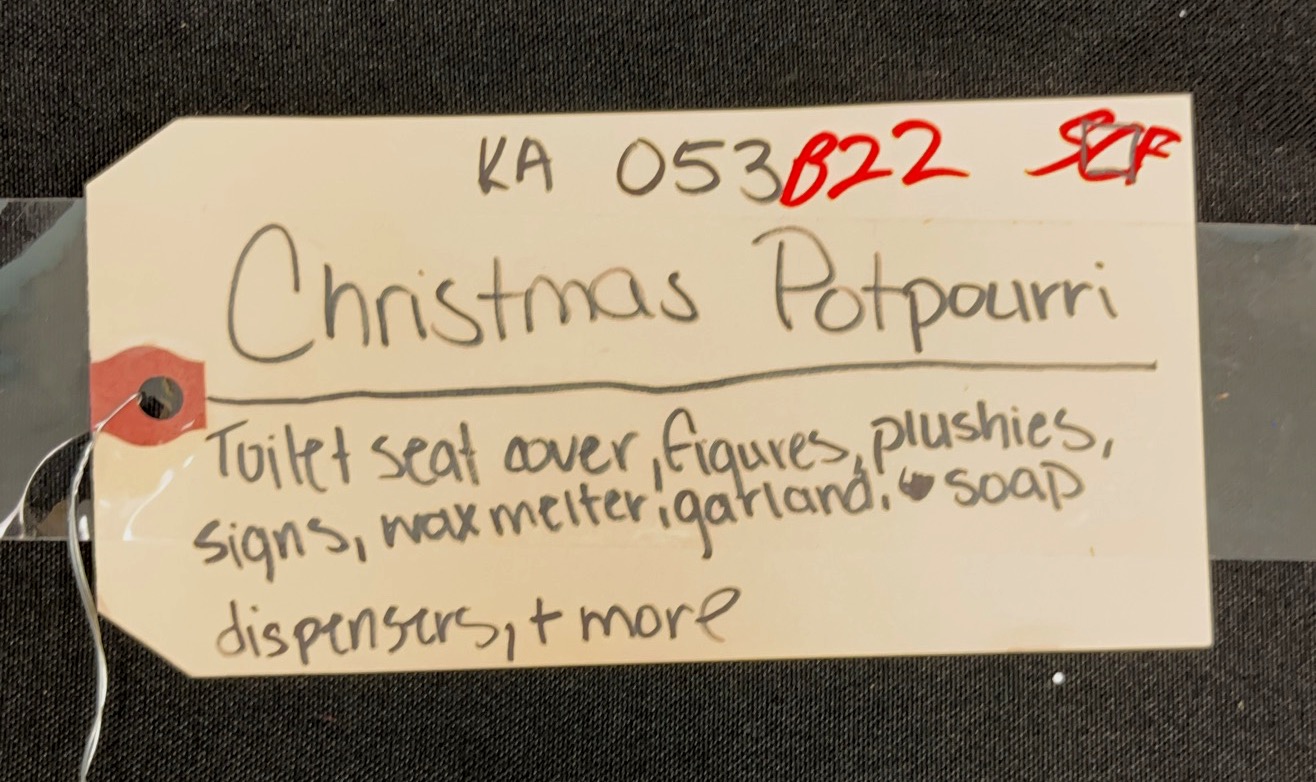 KA 053B22 SCF
Christmas Potpourri
Toilet seat cover, figures, plushies,
signs, wax melter, garland, soap
dispensers, + more